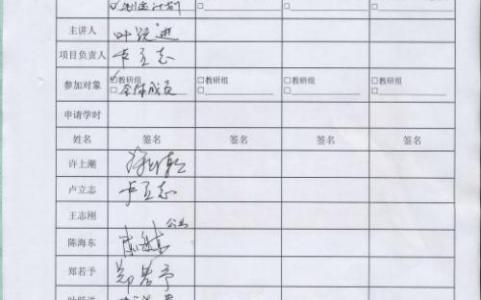 制定计划
主讲人 叶跃进
项目负责人 卢立志
参加对象 ☑教研组 □教研组 □教研组 □教研组
□全体成员 □ □ □
申请学时
姓名 签名 签名 签名 签名
许上潮
卢立志 卢立志
王志刚 公出
陈海东 陈海东
郑若予 郑若予